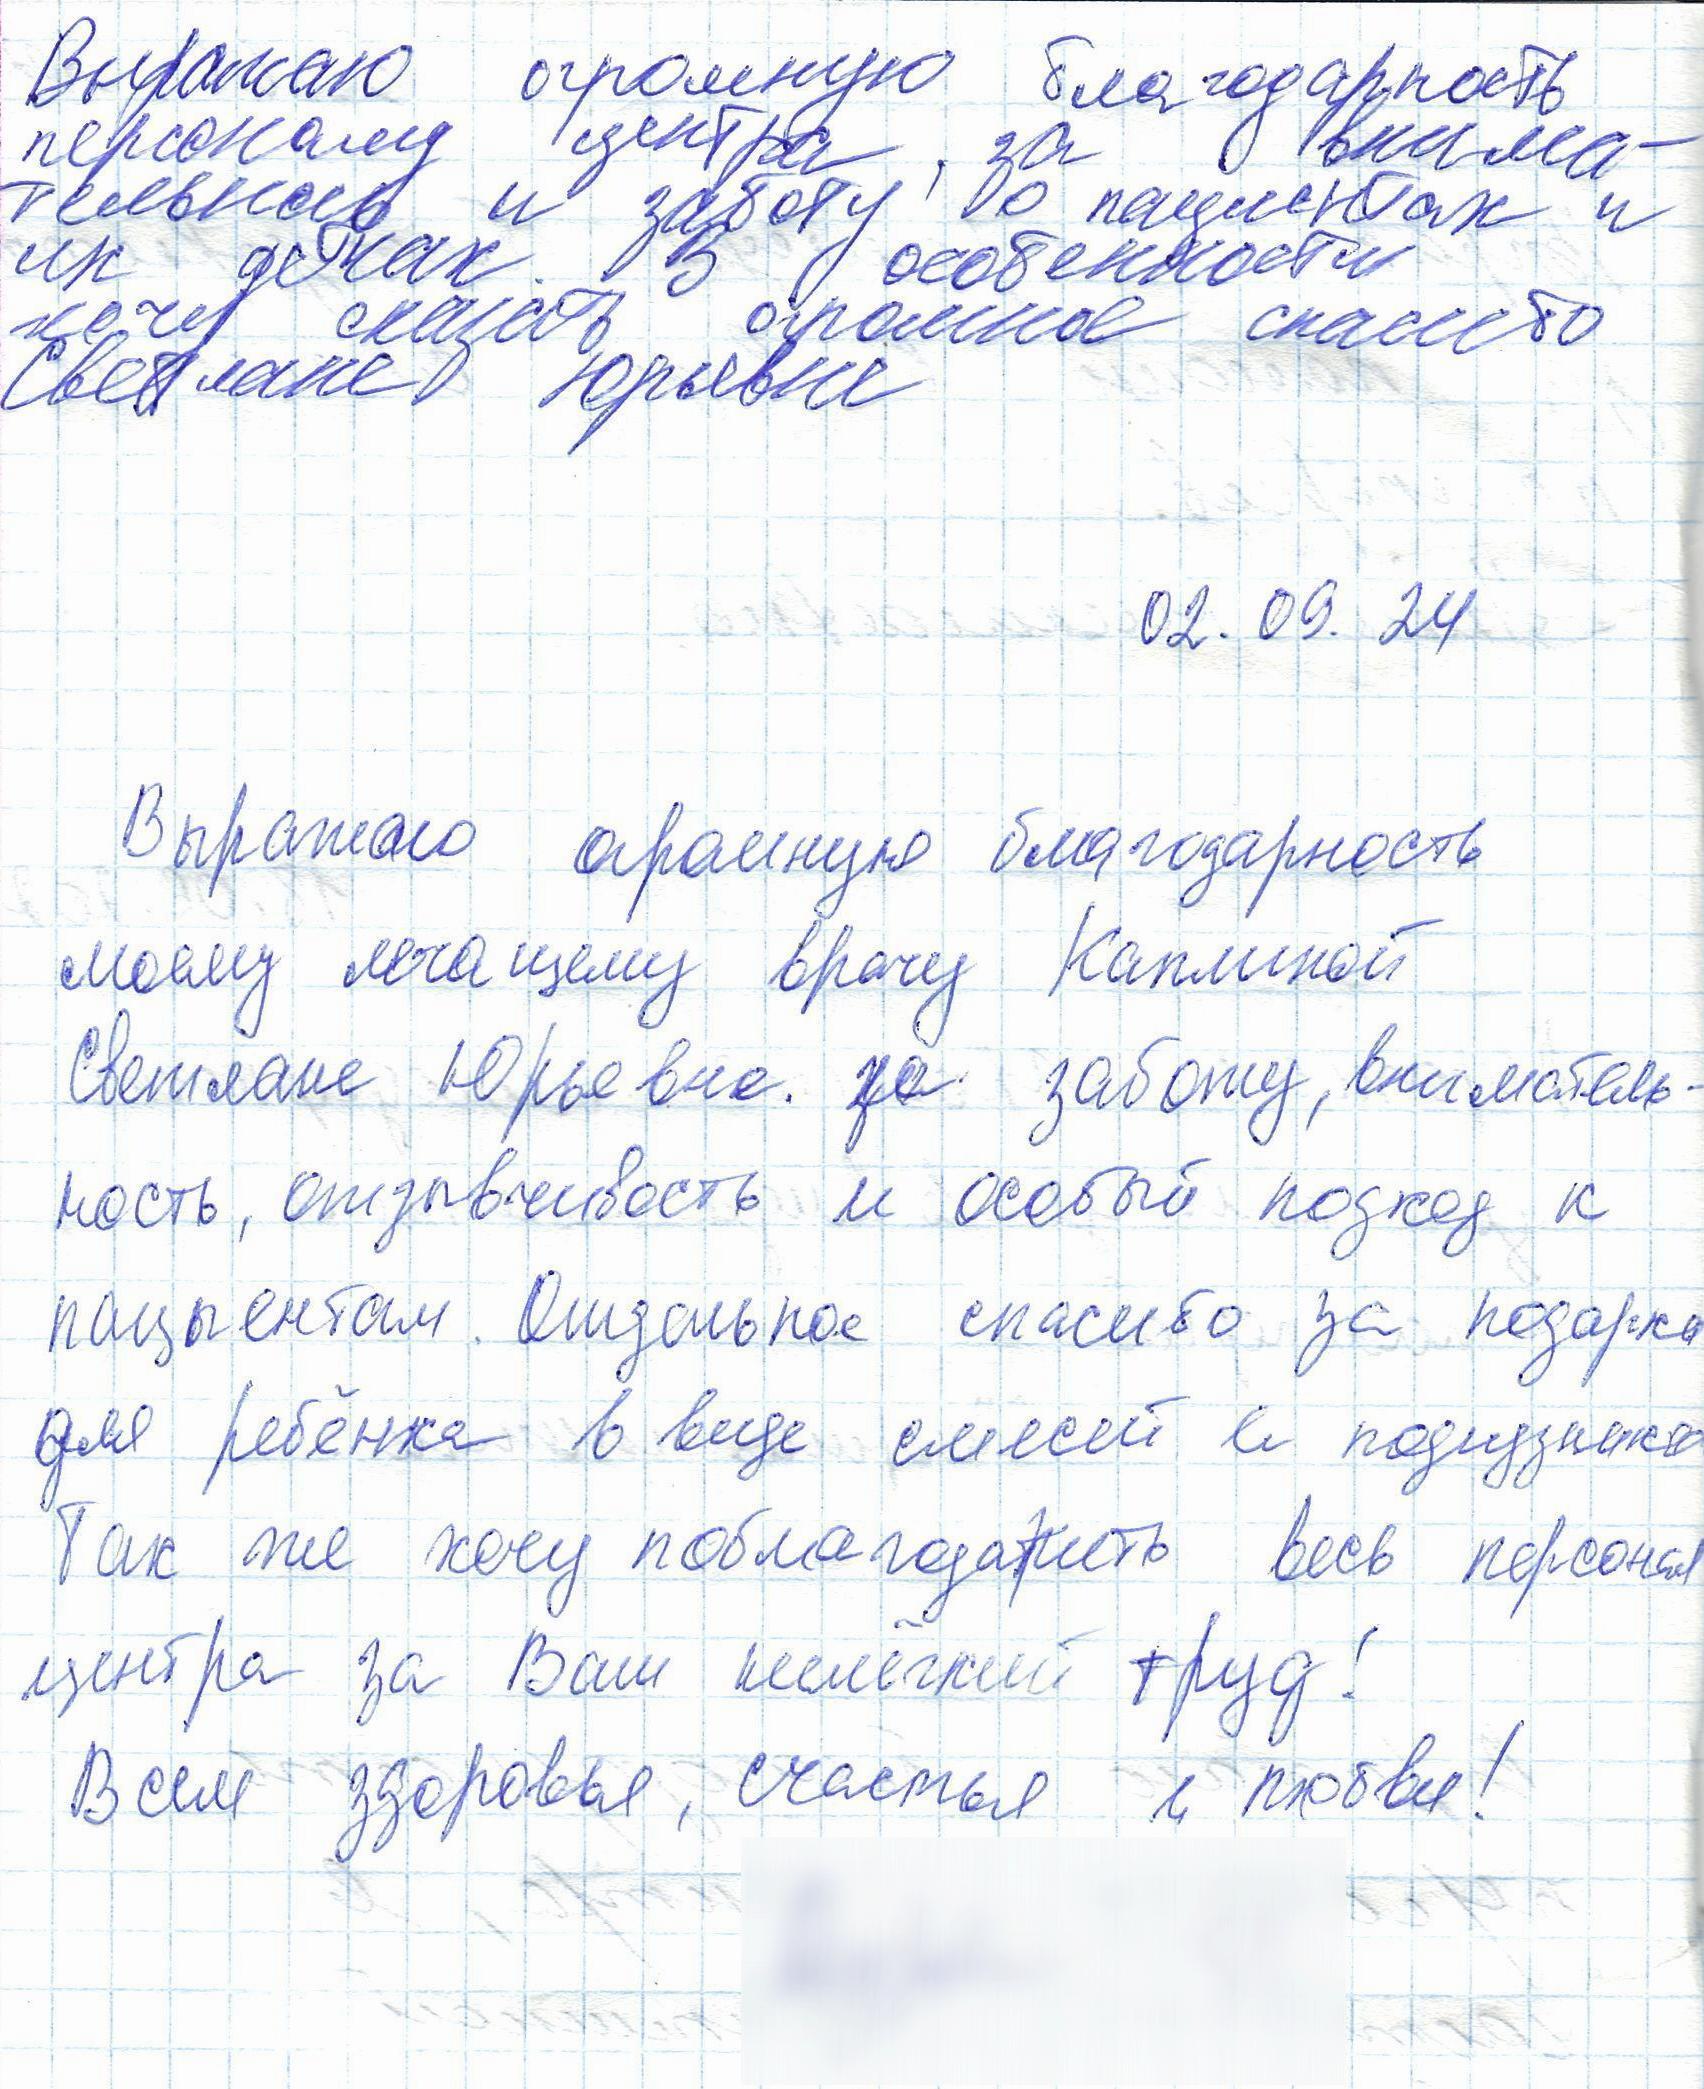 Выражаю огромную благодарность
персоналу центра, за внима-
тельность и заботу о пациентах и
их детках. В особенности
хочу сказать огромное спасибо
Светлане Юрьевне
02.09.24
Выражаю огромную благодарность
моему лечащему врачу Каплиной
Светлане Юрьевне. за заботу, вниматель-
ность, отзывчивость и особый подход к
пацыентам. Отдельное спасибо за подарки
для ребёнка в виде смесей и подгузников
Так же хочу поблагодарить весь персонал
центра за Ваш нелёгкий труд!
Всем здоровья, счастья и любви!